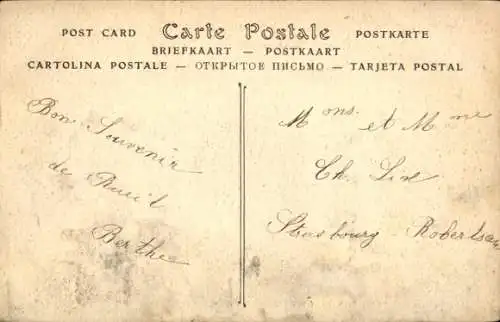 POST CARD Carte Postale POSTKARTE
BRIEFKAART — POSTKAART
CARTOLINA POSTALE — ОТКРЫТОЕ ПИСЬМО — TARJETA POSTAL
Bon Souvenir
de Rueil
Berthe
Mons. et Mme
Ch. Lix
Strasbourg Robertsau